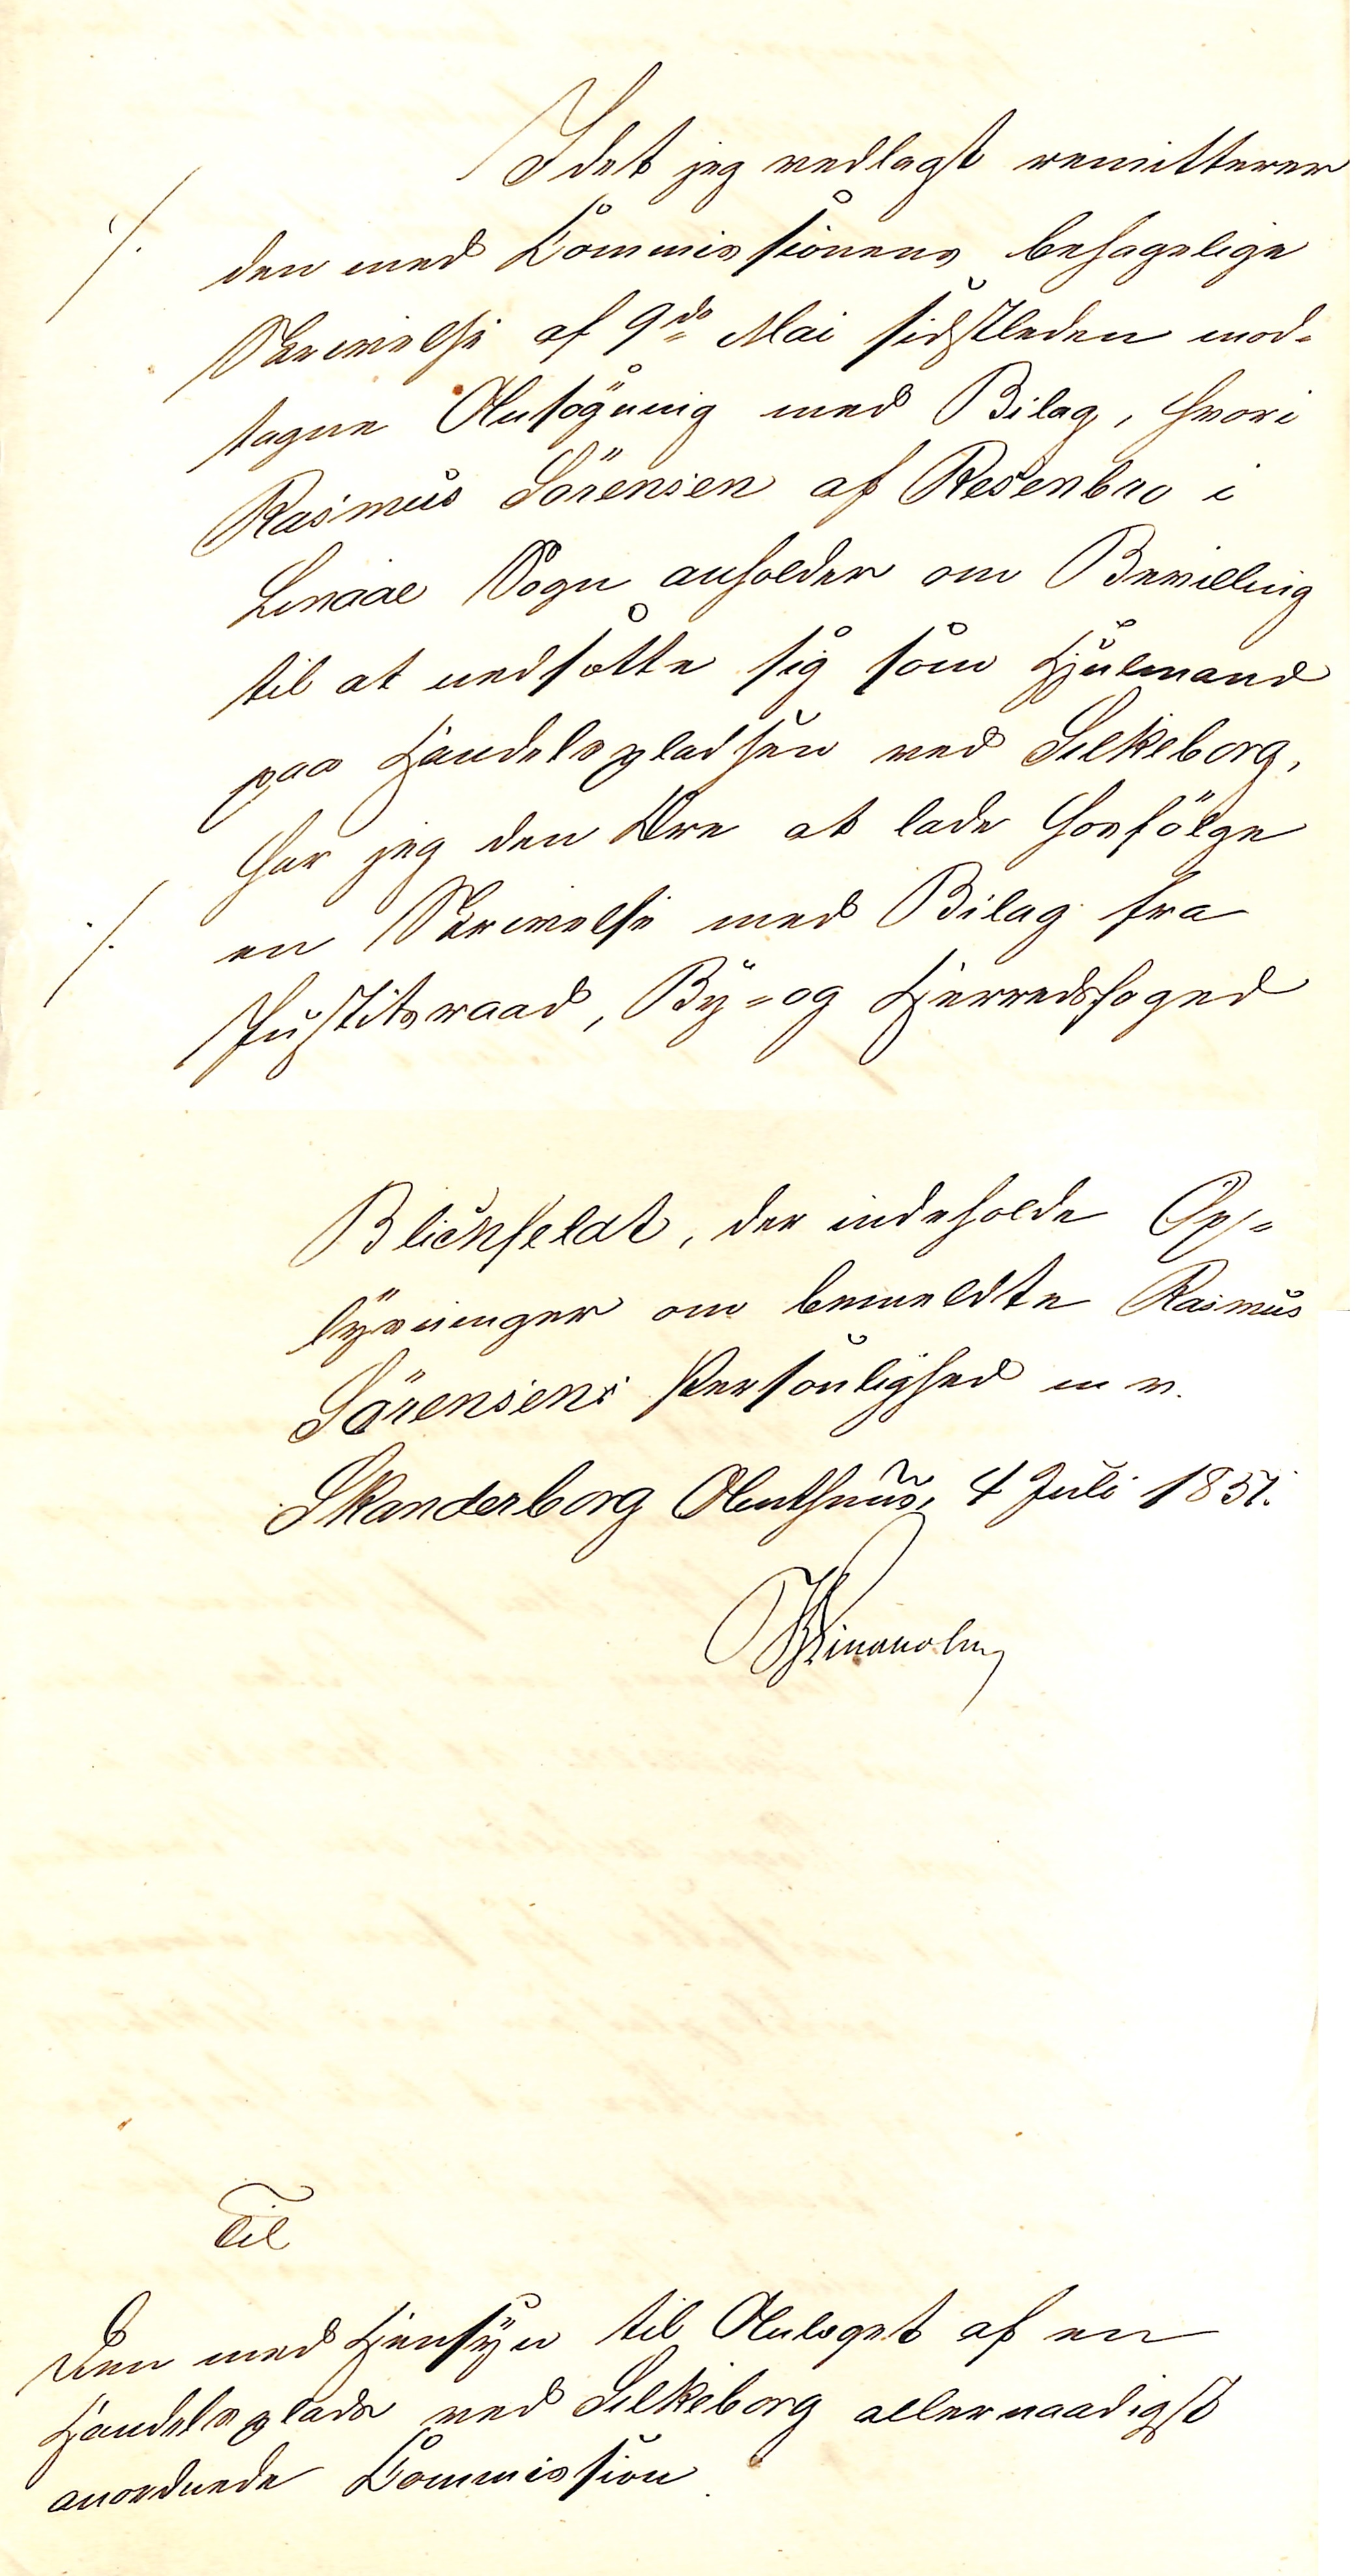 Idet jeg vedlagt remitterer
./. den med Commissionens behagelige
Skrivelse af 9de Mai sidstleden mod-
tagne Ansögning med Bilag, hvori
Rasmus Sörensen af Resenbro i
Linaae Sogn anholder om Bevilling
til at nedsætte sig som Hjulmand
paa Handelspladsen ved Silkeborg,
har jeg den Ære at lade hosfölge
./. en Skrivelse med Bilag fra
Justitsraad, By- og Herredsfoged
Blichfeldt, der indeholde Op-
lysninger om bemeldte Rasmus
Sörensens Personlighed m v.
Skanderborg Amthuus, 4 Juli 1851.
Til
Den med Hensyn til Anlæget af en
Handelsplads ved Silkeborg allernaadigst
anordnede Commission.